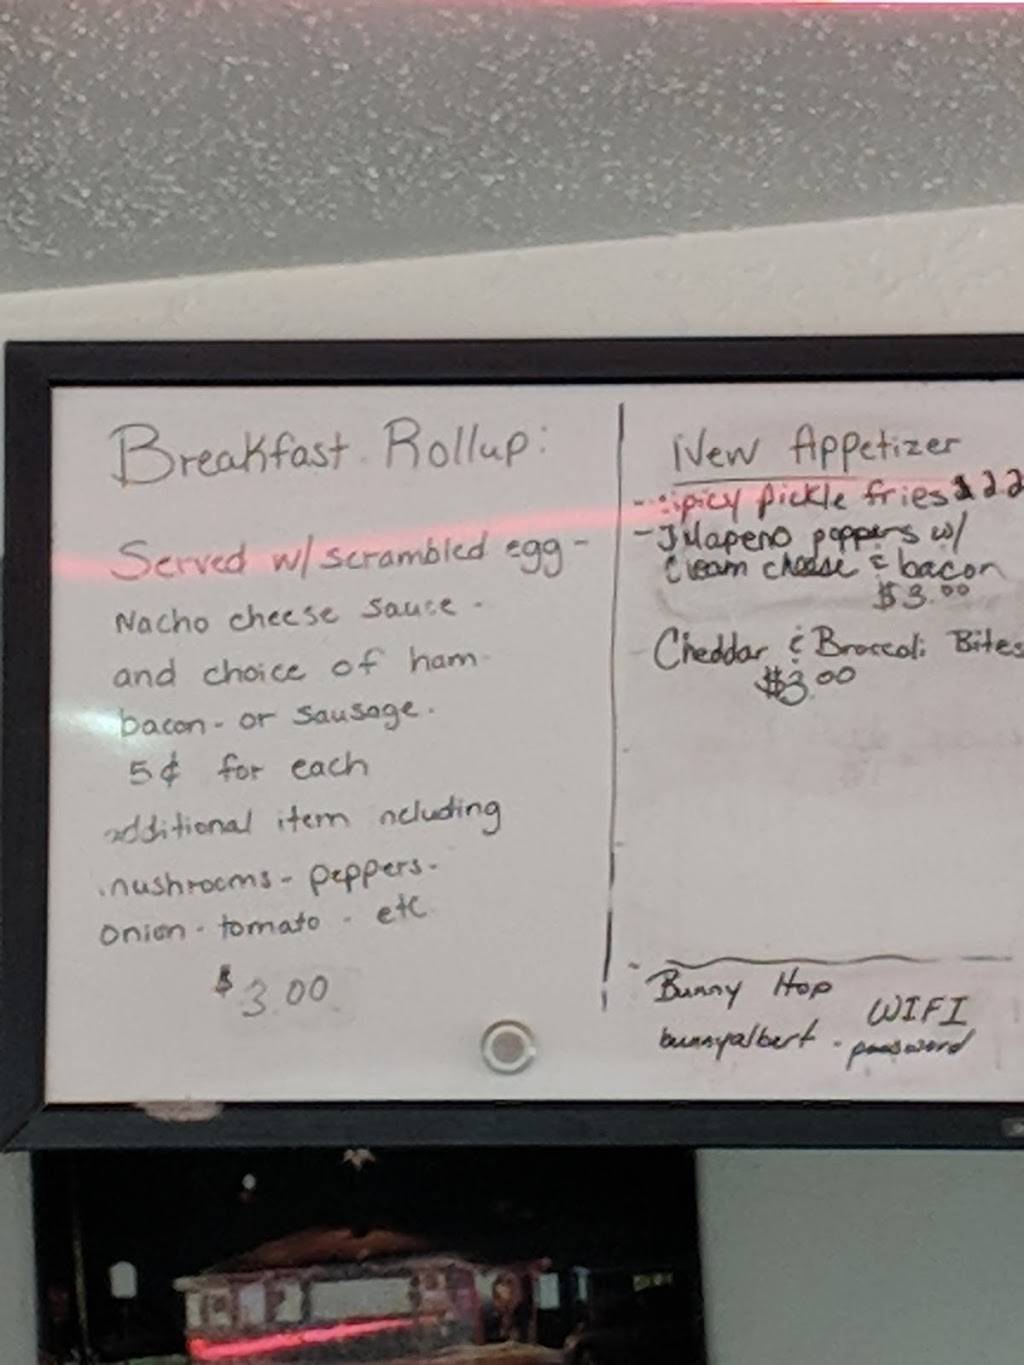 Breakfast Rollup:
Served w/ scrambled egg -
Nacho cheese sauce -
and choice of ham -
bacon - or sausage.
5¢ for each
additional item ncluding
mushrooms - peppers -
onion - tomato - etc
$3.00
New Appetizer
- spicy pickle fries
- Jalapeno poppers w/
cream cheese & bacon
$3.00
- Cheddar & Broccoli Bites
$3.00
Bunny Hop WIFI
bunnyalbert - password